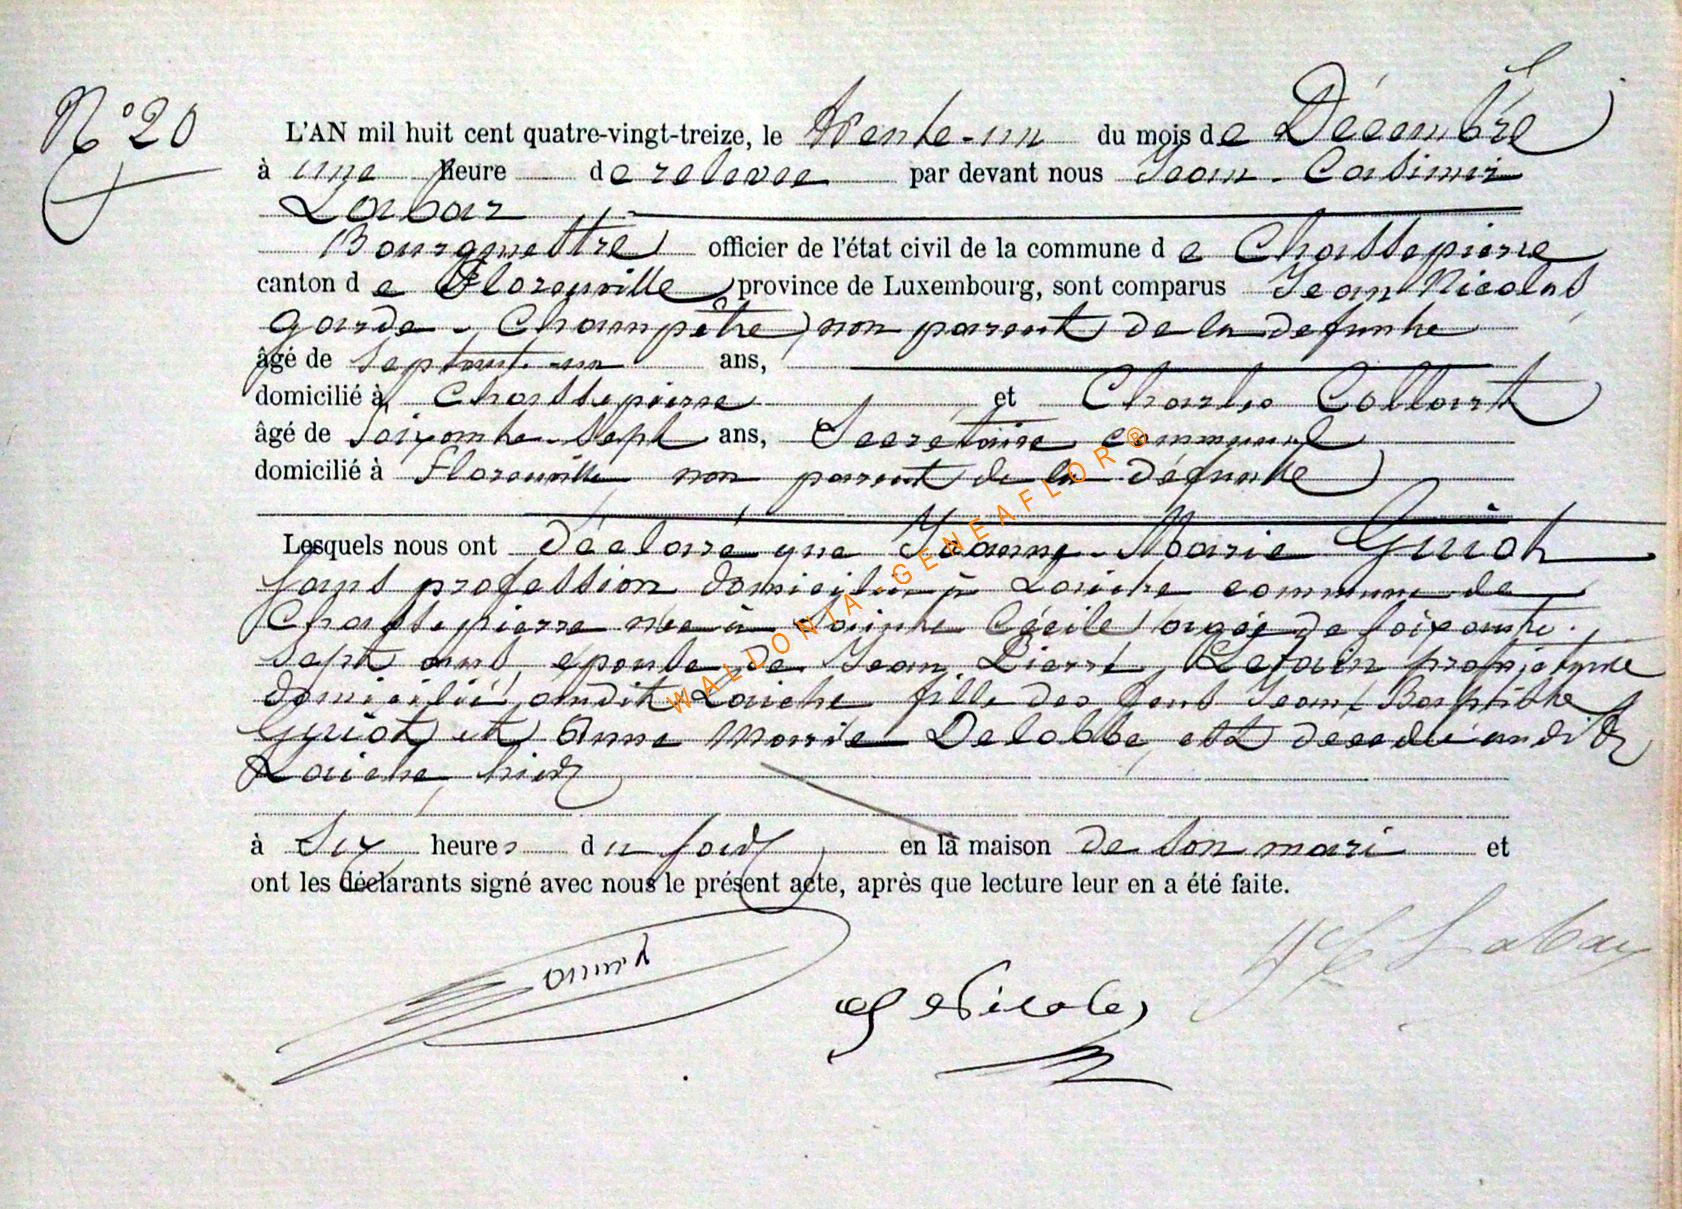 N° 20
L'AN mil huit cent quatre-vingt-treize, le trente-un du mois de Décembre
à une heure de relevée par devant nous Jean-Casimir
Labar
Bourgmestre officier de l'état civil de la commune de Chassepierre
canton de Florenville province de Luxembourg, sont comparus Jean Nicolas
garde-Champêtre non parent de la défunte
âgé de septante-un ans,
domicilié à Chassepierre et Charles Collart
âgé de Soixante-sept ans, Secrétaire communal
domicilié à Florenville non parent de la défunte
Lesquels nous ont déclaré que Jeanne-Marie Guiot
sans profession domiciliée à Laiche commune de
Chassepierre née à Sainte Cécile âgée de soixante-
sept ans, épouse de Jean Pierre Lefain propriétaire
domicilié audit Laiche fille des feus Jean-Baptiste
Guiot et Anne Marie Delobbe, est décédée audit
Laiche hier
à Six heures du soir en la maison de son mari et
ont les déclarants signé avec nous le présent acte, après que lecture leur en a été faite.
Nicolas
Labar
WALDONIA GENEAFLOR®